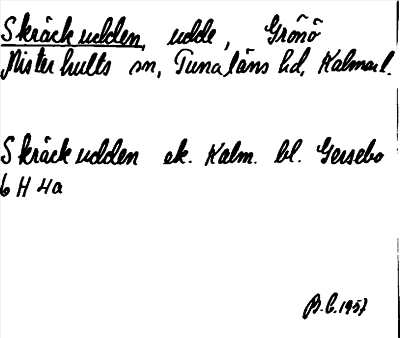 Skräckudden, udde, Grönö
Misterhults sn, Tunaläns hd, Kalmar l.
Skräckudden ek. Kalm. bl. Gersebo
6 H 4a
B.C. 1957